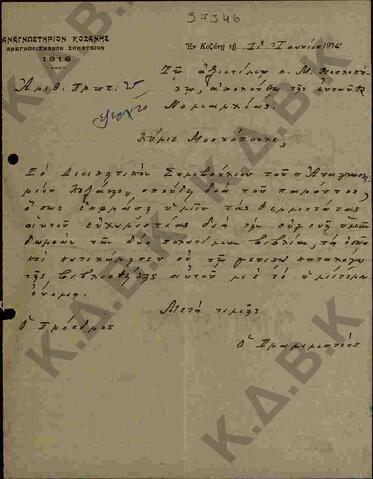 37546
ΑΝΑΓΝΩΣΤΗΡΙΟΝ ΚΟΖΑΝΗΣ
ΑΝΕΓΝΩΡΙΣΜΕΝΟΝ ΣΩΜΑΤΕΙΟΝ
1916
Ἐν Κοζάνῃ τῇ 1ῃ Ἰουνίου 1916
Τῷ ἀξιοτίμῳ κ. Μ.
Ἀριθ. Πρωτ: τῆς ἐνταῦθα
Νομαρχίας.
Κύριε Μοσκόπουλε,
Τὸ Διοικητικὸν Συμβούλιον τοῦ Ἀναγνωστη-
ρίου Κοζάνης σπεύδει διὰ τοῦ παρόντος,
ὅπως ἐκφράσῃ ὑμῖν τὰς θερμοτάτας
αὐτοῦ εὐχαριστίας διὰ τὴν εὐγενῆ ὑμῶν
δωρεὰν τῶν δύο πολυτίμων βιβλίων, τὰ ὁποῖα
καὶ κατεχώρησεν ἐν τῷ γενικῷ καταλόγῳ
τῆς βιβλιοθήκης αὐτοῦ μὲ τὸ ὑμέτερον
ὄνομα.
Μετὰ τιμῆς
Ὁ Πρόεδρος
Ὁ Γραμματεύς
Κ.Δ.Β.Κ